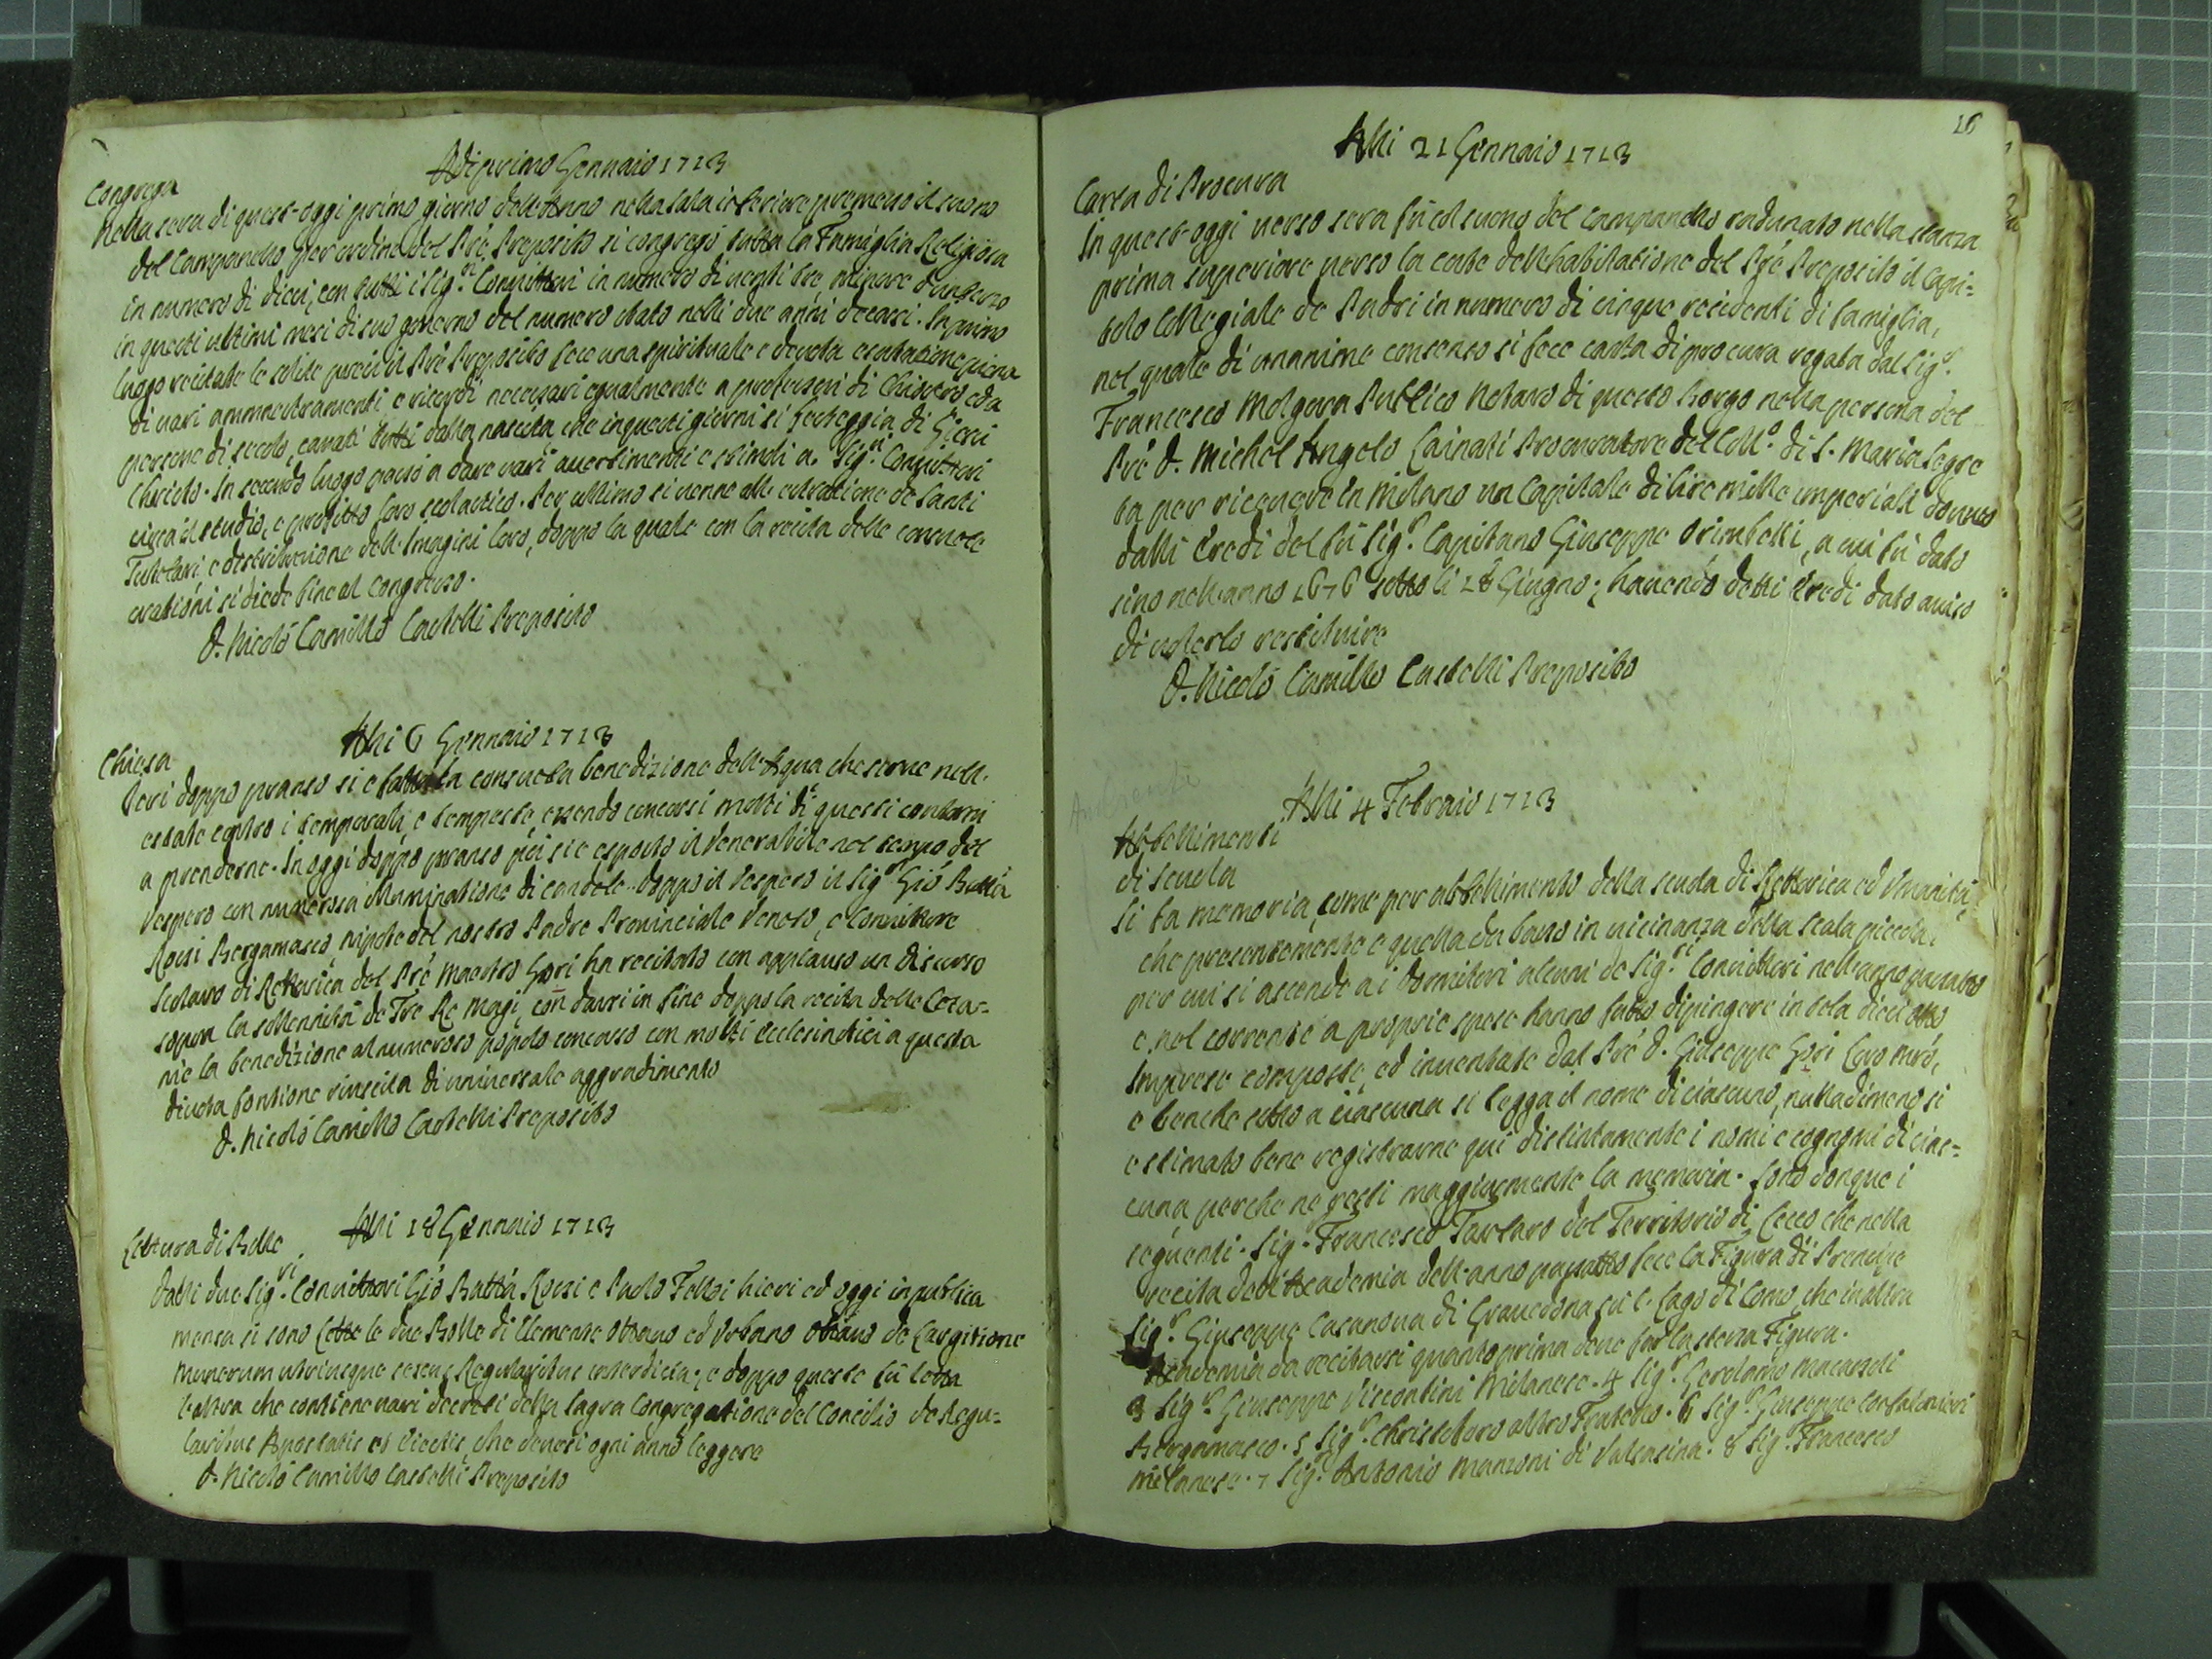 Adi primo Gennaio 1713
Congrega
Nella sera di quest'oggi primo giorno dell'Anno nella sala inferiore premesso il suono
del Campanello per ordine del Pré Preposito si congregò tutta la Famiglia Religiosa
in numero di dieci, con tutti i Sig.ri Convittori in numero di venti tre minore d'un terzo
in questi ultimi mesi di suo governo del numero stato nelli due anni decorsi. In primo
luogo recitate le solite preci il Pré Preposito fece una spirituale e devota esortazione piena
di vari ammaestramenti e ricordi necessari egualmente a professori di Chiostro ed a
persone di secolo, cavati tutti dalla nascita, che in questi giorni si festeggia di Giesù
Christo. In secondo luogo passò a dare vari avertimenti e stimoli a' Sig.ri Convittori
circa il studio, e profitto loro scolastico. Per ultimo si venne alla estratione de Santi
Tutelari e distribuzione dell'Imagini loro, doppo la quale con la recita delle consuete
orationi si diede fine al Congresso.
D. Nicolò Camillo Castelli Preposito
Alli 6 Gennaio 1713
Chiesa
Ieri doppo pranso si è fatta la consueta benedizione dell'Aqua che serve nell'
estate contro i temporali, e tempeste, essendo concorsi molti di questi contorni
a prenderne. In oggi doppo pranso poi si è esposto il Venerabile nel tempo del
Vespero con numerosa illuminatione di candele. doppo il Vespero il Sig.r Giò Batta
Rossi Bergamasco, nipote del nostro Padre Provinciale Veneto, e Convittore
scolaro di Rettorica del Pré Maestro Gori ha recitato con applauso un discorso
sopra la sollennità de Tre Re Magi, con darsi in fine doppo la recita delle Leta=
nie la benedizione al numeroso popolo concorso con molti Ecclesiastici a questa
divota fontione riuscita di universale aggradimento
D. Nicolò Camillo Castelli Preposito
Alli 18 Gennaio 1713
Lettura di Bolle
Dalli due Sig.ri Convittori Giò Batta Rossi e Paolo Fossi hieri ed oggi in publica
mensa si sono lette le due Bolle di Clemente Ottavo ed Urbano Ottavo de Largitione
Munerum utriusque sexus Regularibus interdicta, e doppo queste fù letta
l'altra che contiene vari decreti della Sagra Congregatione del Concilio de Regu=
laribus Apostatis et Eiectis, che devesi ogni anno leggere
D. Nicolò Camillo Castelli Preposito
16
Alli 21 Gennaio 1713
Carta di Procura
In quest'oggi verso sera fù col suono del campanello radunato nella stanza
prima superiore verso la corte dell'habitatione del Pré Preposito il Capi=
tolo Collegiale de Padri in numero di cinque residenti di famiglia,
nel quale di unanime consenso si fece carta di procura rogata dal Sig.r
Francesco Molgora Publico Notaro di questo Borgo nella persona del
Pré D. Michel Angelo Cainati Procuratore del Coll.o di S. Maria Segre
ta per ricevere in Milano un Capitale di lire mille imperiali dovuto
dalli Eredi del fù Sig.r Capitano Giuseppe Orimbelli, a cui fù dato
sino nell'anno 1676 sotto li 18 Giugno; havendo detti Eredi dato aviso
di volerlo restituire
D. Nicolò Camillo Castelli Preposito
Alli 4 Febraio 1713
Abbellimenti
di scuola
Si fa memoria, come per abbellimento della scuola di Rettorica ed Umanità,
che presentemente è quella da basso in vicinanza della scala piccola,
per cui si ascende a i dormitori alcuni de Sig.ri Convittori nell'anno passato
e nel corrente a proprie spese hanno fatto dipingere in tela dieci otto
Imprese composte, ed inventate dal Pré D. Giuseppe Gori loro mrò,
e benche sotto a ciascuna si legga il nome di ciascuno, nulladimeno si
è stimato bene registrarne qui distintamente i nomi e cognomi di cias=
cuna perche ne resti maggiormente la memoria. Sono donque i
seguenti. Sig.r Francesco Tartaro del Territorio di Lecco che nella
recita dell'Academia dell'anno passato fece la Figura di Prencipe
Sig.r Giuseppe Casanova di Gravedona su 'l Lago di Como, che in altra
Academia da recitarsi quanto prima deve far la stessa Figura.
3 Sig.r Giuseppe Viscontini Milanese. 4 Sig.r Gerolamo Macassoli
Bergamasco. 5 Sig.r Christoforo altro Fratello. 6 Sig.r Giuseppe Confalonieri
Milanese. 7 Sig.r Antonio Manzoni di Valsasina. 8 Sig.r Francesco